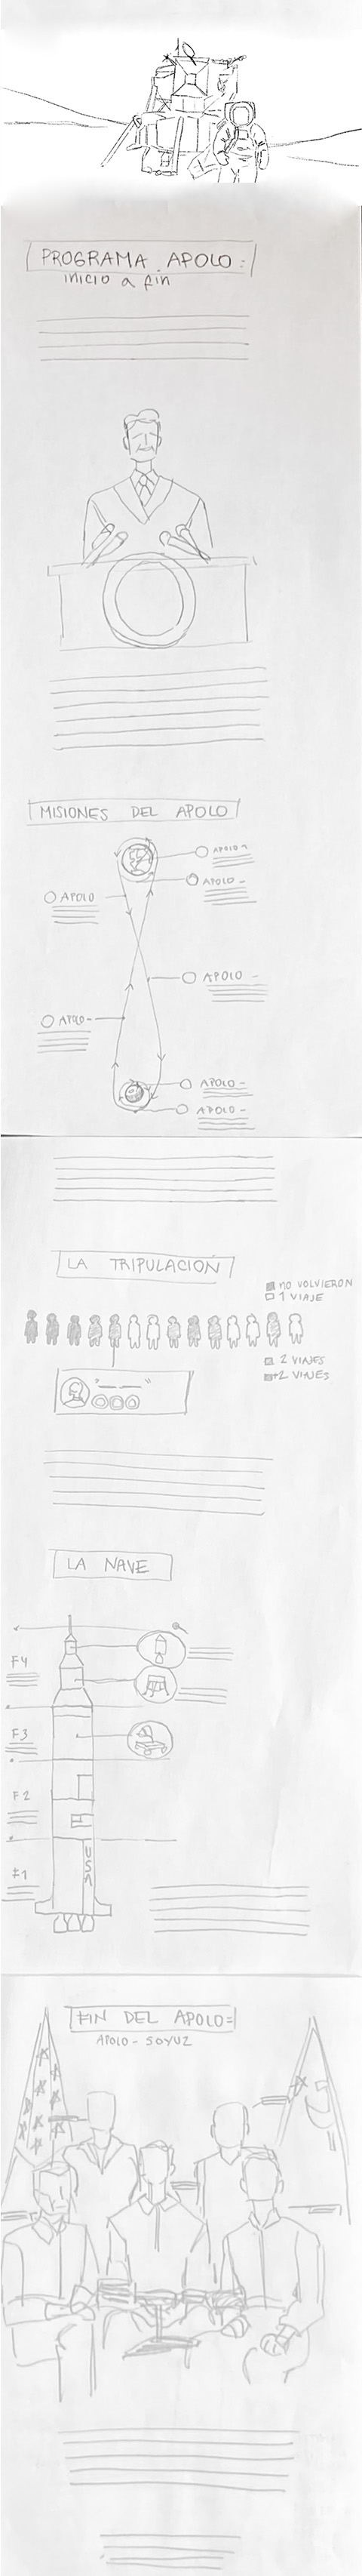 PROGRAMA APOLO:
inicio a fin
MISIONES DEL APOLO
APOLO-
APOLO-
APOLO
APOLO -
APOLO-
APOLO-
APOLO-
LA TRIPULACION
no VOLVIERON
1 VIAJE
2 VIAJES
+2 VIAJES
LA NAVE
F4
F3
F2
F1
USA
FIN DEL APOLO=
APOLO - SOYUZ